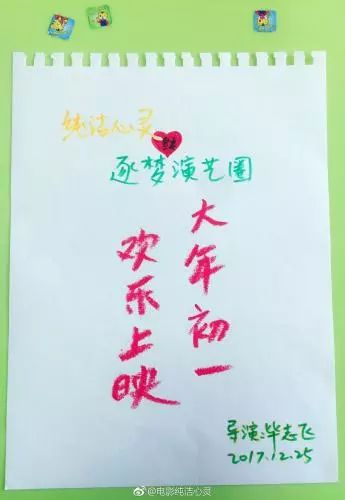 纯洁心灵
逐梦演艺圈
大年初一
欢乐上映
导演:毕志飞
2017.12.25
@电影纯洁心灵